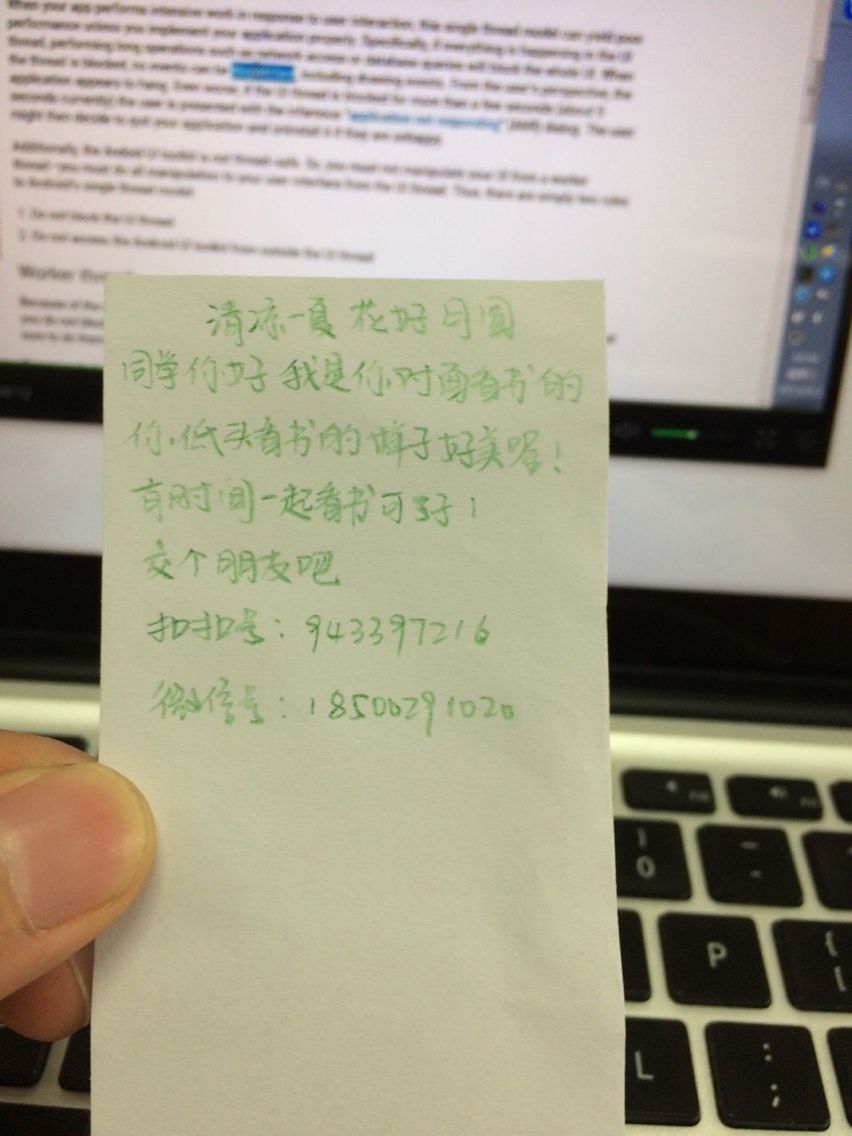 When your app performs intensive work in response to user interaction, this single thread model can yield poor
performance unless you implement your application properly. Specifically, if everything is happening in the UI
thread, performing long operations such as network access or database queries will block the whole UI. When
the thread is blocked, no events can be including drawing events. From the user's perspective, the
application appears to hang. Even worse, if the UI thread is blocked for more than a few seconds (about 5
seconds currently) the user is presented with the infamous "application not responding" (ANR) dialog. The user
might then decide to quit your application and uninstall it if they are unhappy.
Additionally, the Android UI toolkit is not thread-safe. So, you must not manipulate your UI from a worker
thread—you must do all manipulation to your user interface from the UI thread. Thus, there are simply two rules
to Android's single thread model:
1. Do not block the UI thread
2. Do not access the Android UI toolkit from outside the UI thread
Worker
Because of the
you do not
清凉一夏 花好月圆
同学你好 我是你对面看书的
你低头看书的样子好美喔!
有时间一起看书可好!
交个朋友吧
扣扣号: 943397216
微信号: 18500291020
)
0
_
-
P
{
[
L
:
;